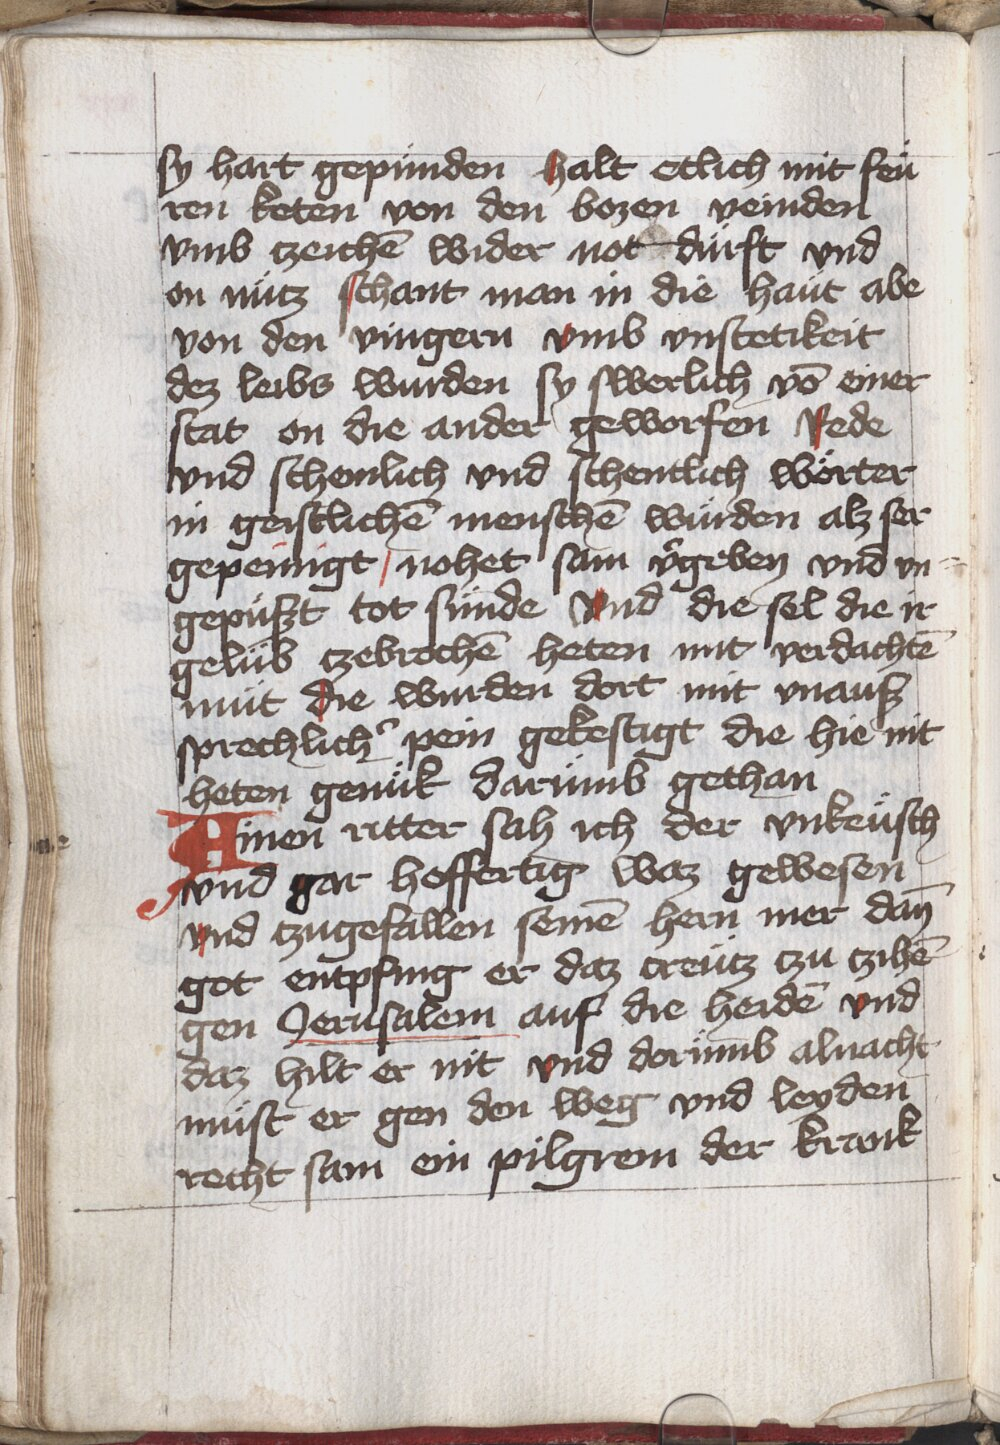 sy hart gepunden halt etlich mit feü
ren keten von den bozen veinden
vmb tzeichē wider not dürft vnd
on nütz schant man in die haüt abe
von den vingern vmb vnstetikeit
dez leibs wurden sy swerlich vō einer
stat on die ander geworfen Rede
vnd schemlich vnd schentlich wörter
in geistlichē menschē würden alz ser
gepeinigt / nohet sam v̂geben vnd vn=
gepüßt tot sünde Vnd die sel die ir
gelüb tzebrochē heten mit verdachtē
müt die wurden dort mit vnauß
sprechlichˀ pein gekestigt die hie nit
heten genük darümb gethan
Ainen ritter sah ich der vnkeüsch
vnd gar hoffertig waz gewesen
vnd tzugefallen seinē hern mer dan̄
got entpfing er daz creütz tzu tzihē
gen Jerusalem auf die heidē vnd
daz hilt er nit vnd dorümb alnacht
müst er gen den weg vnd leyden
recht sam ein pilgrem der krank